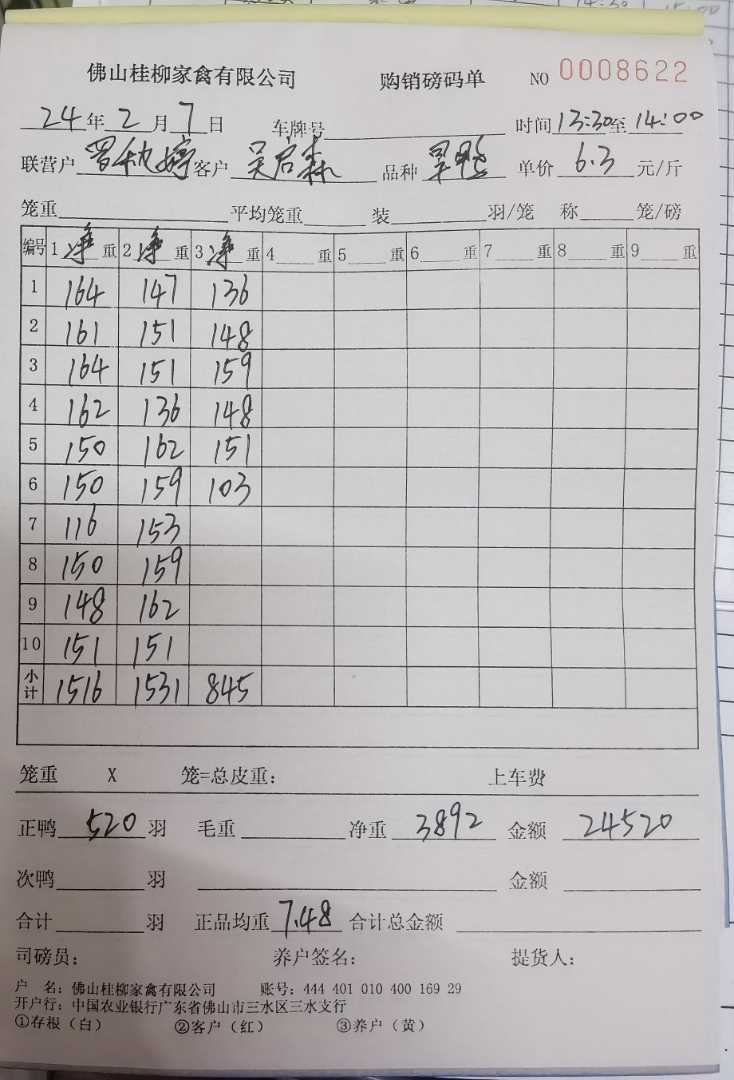 佛山桂柳家禽有限公司 购销磅码单 NO 0008622
24年2月7日 车牌号 时间13:30至14:00
联营户 客户吴启森 品种 单价6.3元/斤
笼重 平均笼重 装 羽/笼 称 笼/磅
编号 1净重 2净重 3净重 4 重 5 重 6 重 7 重 8 重 9 重
1 164 147 136
2 161 151 148
3 164 151 159
4 162 136 148
5 150 162 151
6 150 159 103
7 116 153
8 150 159
9 148 162
10 151 151
小计 1516 1531 845
笼重 X 笼=总皮重: 上车费
正鸭520羽 毛重 净重3892 金额24520
次鸭 羽 金额
合计 羽 正品均重7.48 合计总金额
司磅员: 养户签名: 提货人:
户 名: 佛山桂柳家禽有限公司 账号: 444 401 010 400 169 29
开户行: 中国农业银行广东省佛山市三水区三水支行
①存根（白） ②客户（红） ③养户（黄）